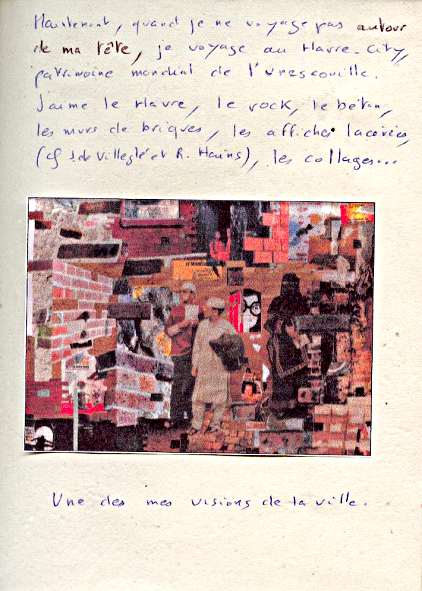 quand je ne voyage pas autour
de ma tête, je voyage au Havre-City,
patrimoine mondial de l'Unescoville.
J'aime le Havre, le rock, le béton,
les murs de briques, les affiches lacérées
(cf J. de Villeglé et R. Hains), les collages...
Une des mes visions de la ville.